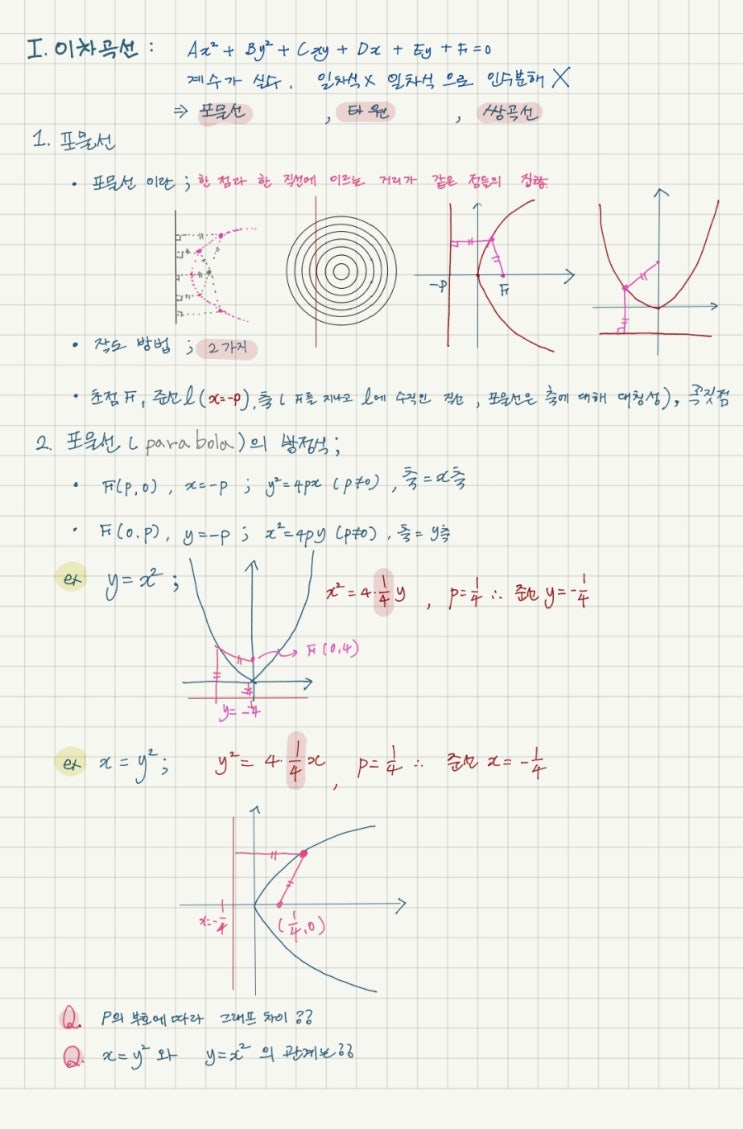 I. 이차곡선 : Ax² + By² + Cxy + Dx + Ey + F = 0
계수가 실수. 일차식 × 일차식 으로 인수분해 X
⇒ 포물선 , 타원 , 쌍곡선
1. 포물선
• 포물선 이란 ; 한 점과 한 직선에 이르는 거리가 같은 점들의 집합.
-P F
• 작도 방법 ; 2가지
• 초점 F, 준선 l (x=-p), 축 ( F를 지나고 l에 수직인 직선, 포물선은 축에 대해 대칭성), 꼭짓점
2. 포물선 (parabola)의 방정식 ;
• F(p,0), x=-p ; y²=4px (p≠0), 축=x축
• F(0.p), y=-p ; x²=4py (p≠0), 축=y축
ex y=x² ; x²=4·1/4 y , p=1/4 ∴ 준선 y=-1/4
F(0,4)
y=-1/4
ex x=y² ; y²=4·1/4 x , p=1/4 ∴ 준선 x=-1/4
x=-1/4 (1/4,0)
Q. P의 부호에 따라 그래프 차이 ??
Q. x=y² 와 y=x² 의 관계는??